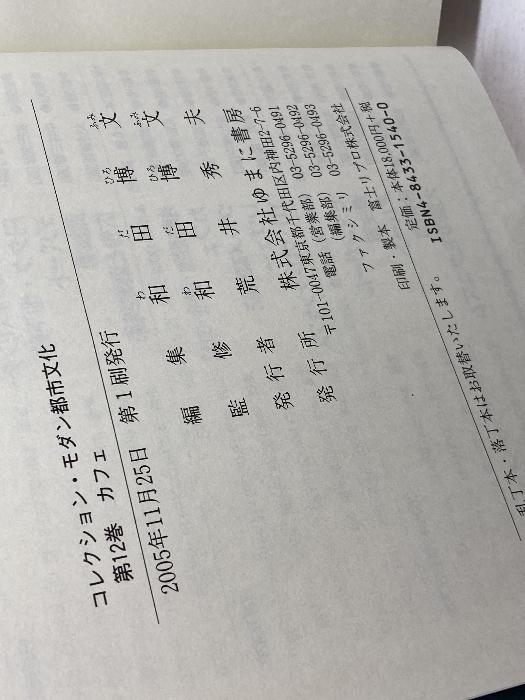 コレクション・モダン都市文化
第12巻 カフェ
2005年11月25日 第1刷発行
わ だ ひろ ふみ
編 集 和 田 博 文
わ だ ひろ ふみ
監 修 和 田 博 文
発 行 者 荒 井 秀 夫
発 行 所 株式会社ゆまに書房
〒101-0047東京都千代田区内神田2-7-6
電話（営業部） 03-5296-0491
（編集部） 03-5296-0492
ファクシミリ 03-5296-0493
印刷・製本 富士リプロ株式会社
定価：本体18,000円＋税
ISBN4-8433-1540-0
乱丁本・落丁本はお取替いたします。